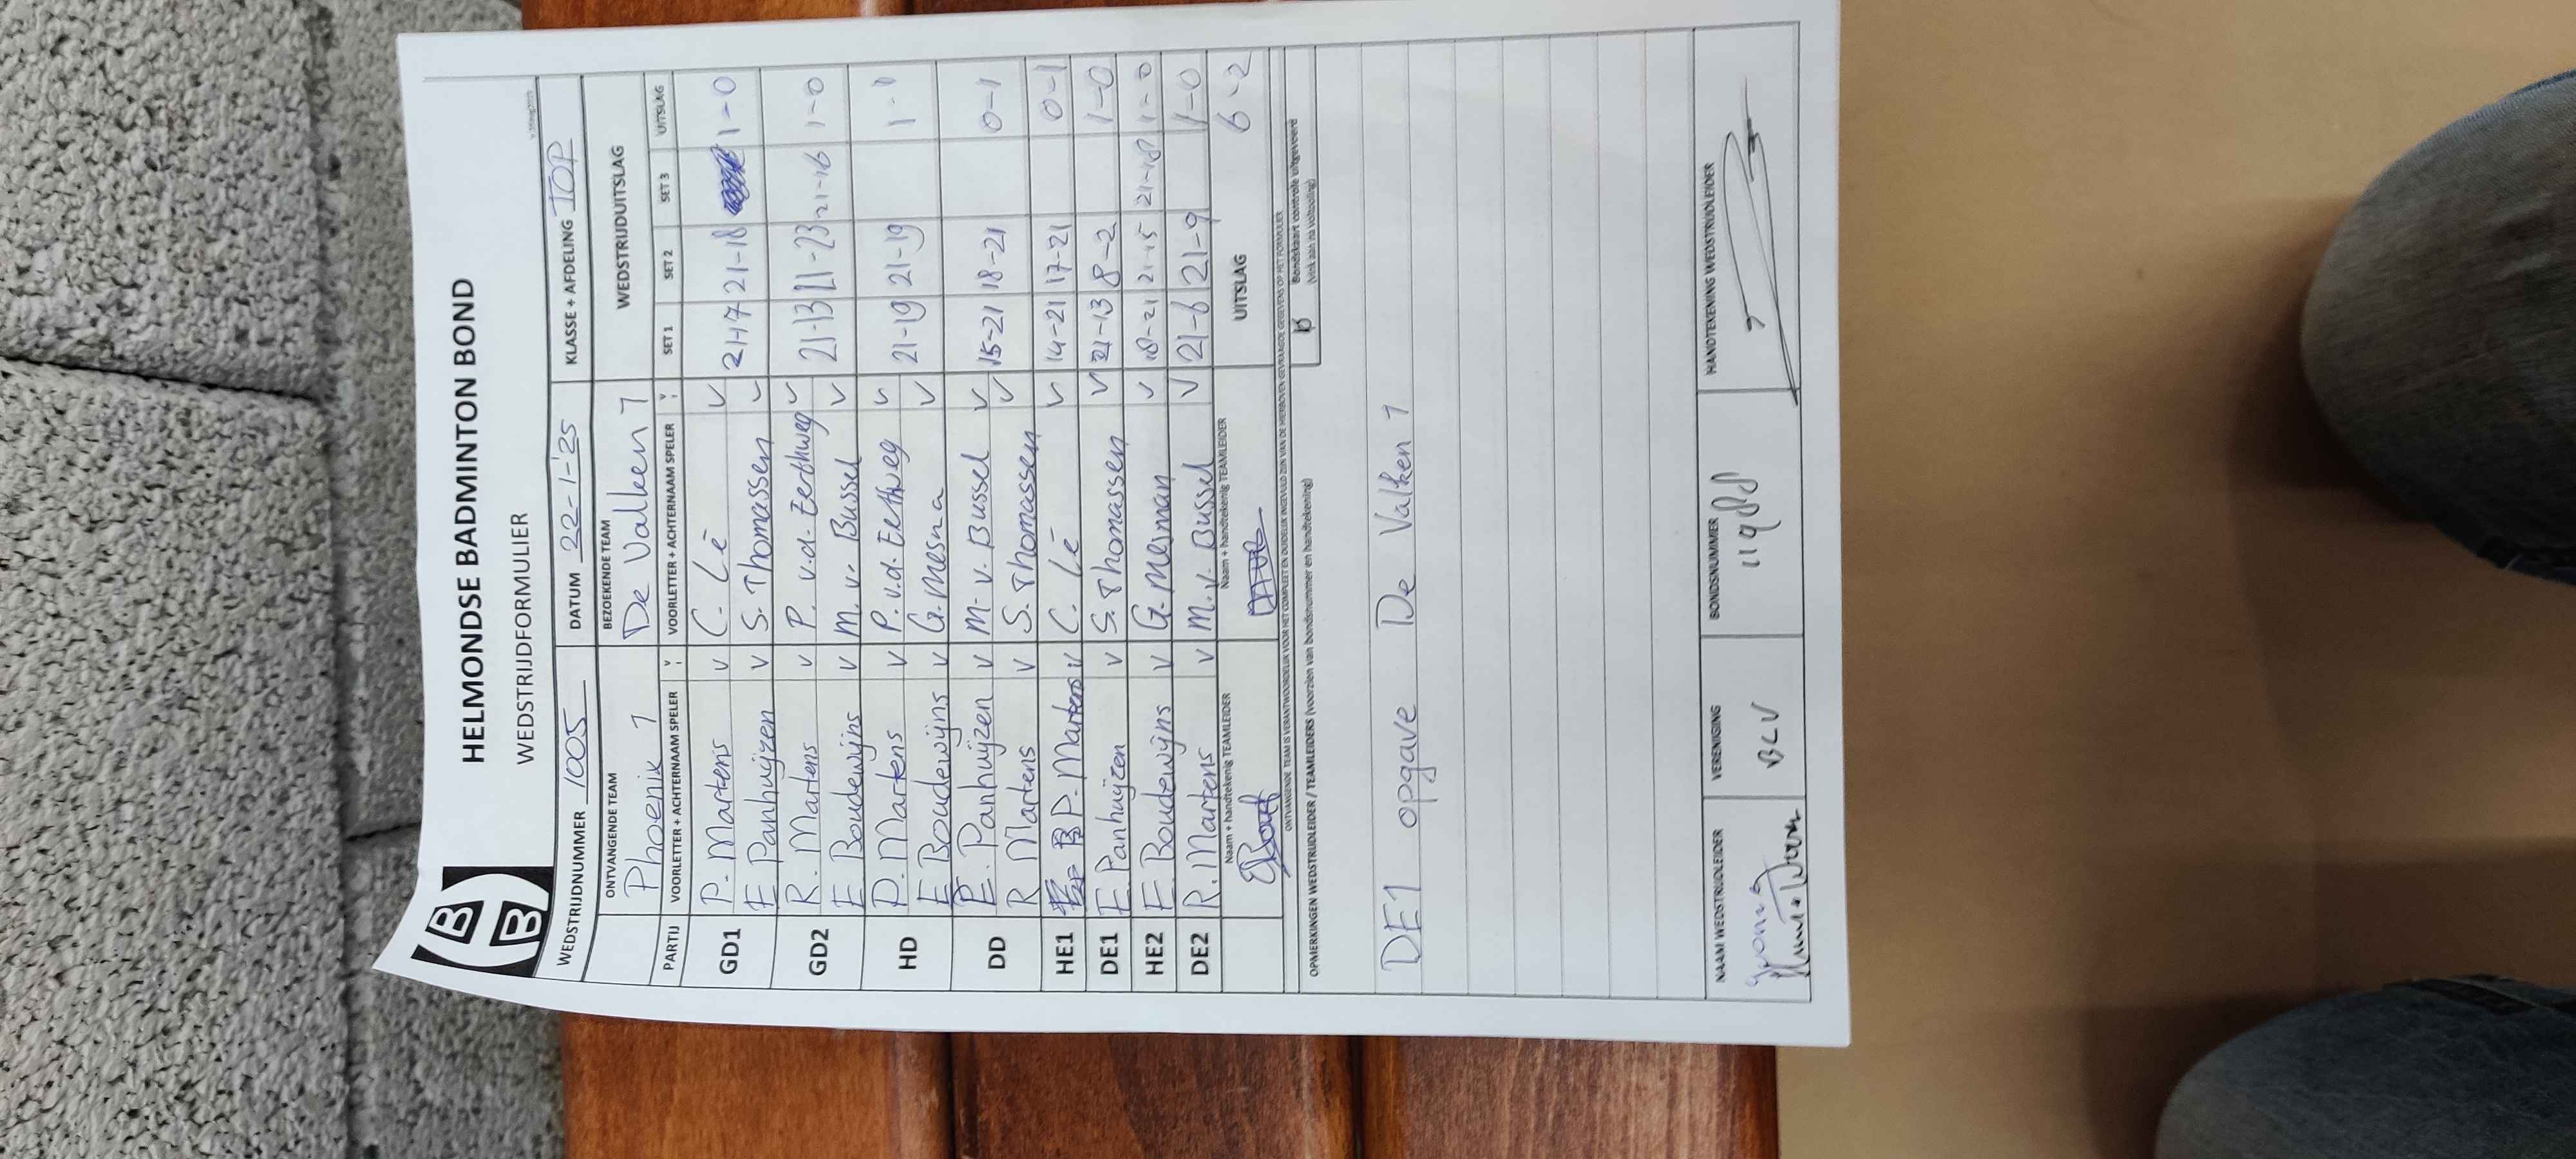 HELMONDSE BADMINTON BOND
WEDSTRIJDFORMULIER
B
B
WEDSTRIJDNUMMER 1005 DATUM 22-1-'25 KLASSE + AFDELING TOP
ONTVANGENDE TEAM BEZOEKENDE TEAM WEDSTRIJDUITSLAG
Phoenix 1 De Valken 1
PARTIJ VOORLETTER + ACHTERNAAM SPELER V VOORLETTER + ACHTERNAAM SPELER V SET 1 SET 2 SET 3 UITSLAG
GD1 P. Martens v C. Lê v 21-17 21-18 1-0
E Panhuijzen v S. Thomassen v
GD2 R. Martens v P. v.d. Eerthweg v 21-13 21-23 21-16 1-0
E Boudewijns v M. v. Bussel v
HD P. Martens v P. v.d. Eerthweg v 21-19 21-19 1-0
E Boudewijns v G. Mesna v
DD E. Panhuijzen v M. v. Bussel v 15-21 18-21 0-1
R Martens v S. Thomassen v
HE1 P. Martens v C. Lê v 14-21 17-21 0-1
DE1 E. Panhuijzen v S. Thomassen v 21-13 8-2 1-0
HE2 E. Boudewijns v G. Mesman v 18-21 21-15 21-18 1-0
DE2 R. Martens v M. v. Bussel v 21-6 21-9 1-0
Naam + handtekenig TEAMLEIDER Naam + handtekenig TEAMLEIDER UITSLAG 6-2
ONTVANGENDE TEAM IS VERANTWOORDELIJK VOOR HET COMPLEET EN DUIDELIJK INGEVULD ZIJN VAN DE HIERBOVEN GEVRAAGDE GEGEVENS OP HET FORMULIER
Bondskaart controle uitgevoerd
(vink aan na voltooiing)
OPMERKINGEN WEDSTRIJDLEIDER / TEAMLEIDERS (voorzien van bondsnummer en handtekening)
DE1 opgave De Valken 1
NAAM WEDSTRIJDLEIDER VERENIGING BONDSNUMMER HANDTEKENING WEDSTRIJDLEIDER
BCV